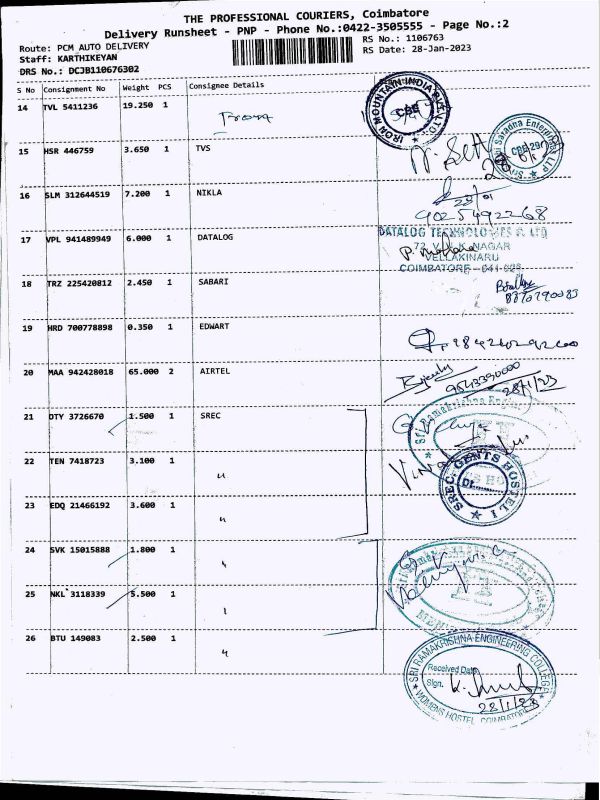 THE PROFESSIONAL COURIERS, Coimbatore
Delivery Runsheet - PNP - Phone No.:0422-3505555 - Page No.:2
Route: PCM AUTO DELIVERY RS No.: 1106763
Staff: KARTHIKEYAN RS Date: 28-Jan-2023
DRS No.: DCJB110676302
S No Consignment No Weight PCS Consignee Details
14 TVL 5411236 19.250 1 From
IRON MOUNTAIN INDIA PVT. LTD. CBE
15 HSR 446759 3.650 1 TVS
16 SLM 312644519 7.200 1 NIKLA
9025492268
17 VPL 941489949 6.000 1 DATALOG
DATALOG TECHNOLOGIES P. LTD
NAGAR
VELLAKINARU
COIMBATORE
18 TRZ 225420812 2.450 1 SABARI
19 HRD 700778898 0.350 1 EDWART
20 MAA 942428018 65.000 2 AIRTEL
28/1/23
21 DTY 3726670 1.500 1 SREC
Sri Ramakrishna Engin
22 TEN 7418723 3.100 1 "
SREC. GENTS HOSTEL I
23 EDQ 21466192 3.600 1 "
24 SVK 15015888 1.800 1 "
25 NKL 3118339 5.500 1 "
26 BTU 149083 2.500 1 "
SRI RAMAKRISHNA ENGINEERING COLLEGE
Received Date
Sign.
28/1/23
WOMENS HOSTEL COIMBATORE